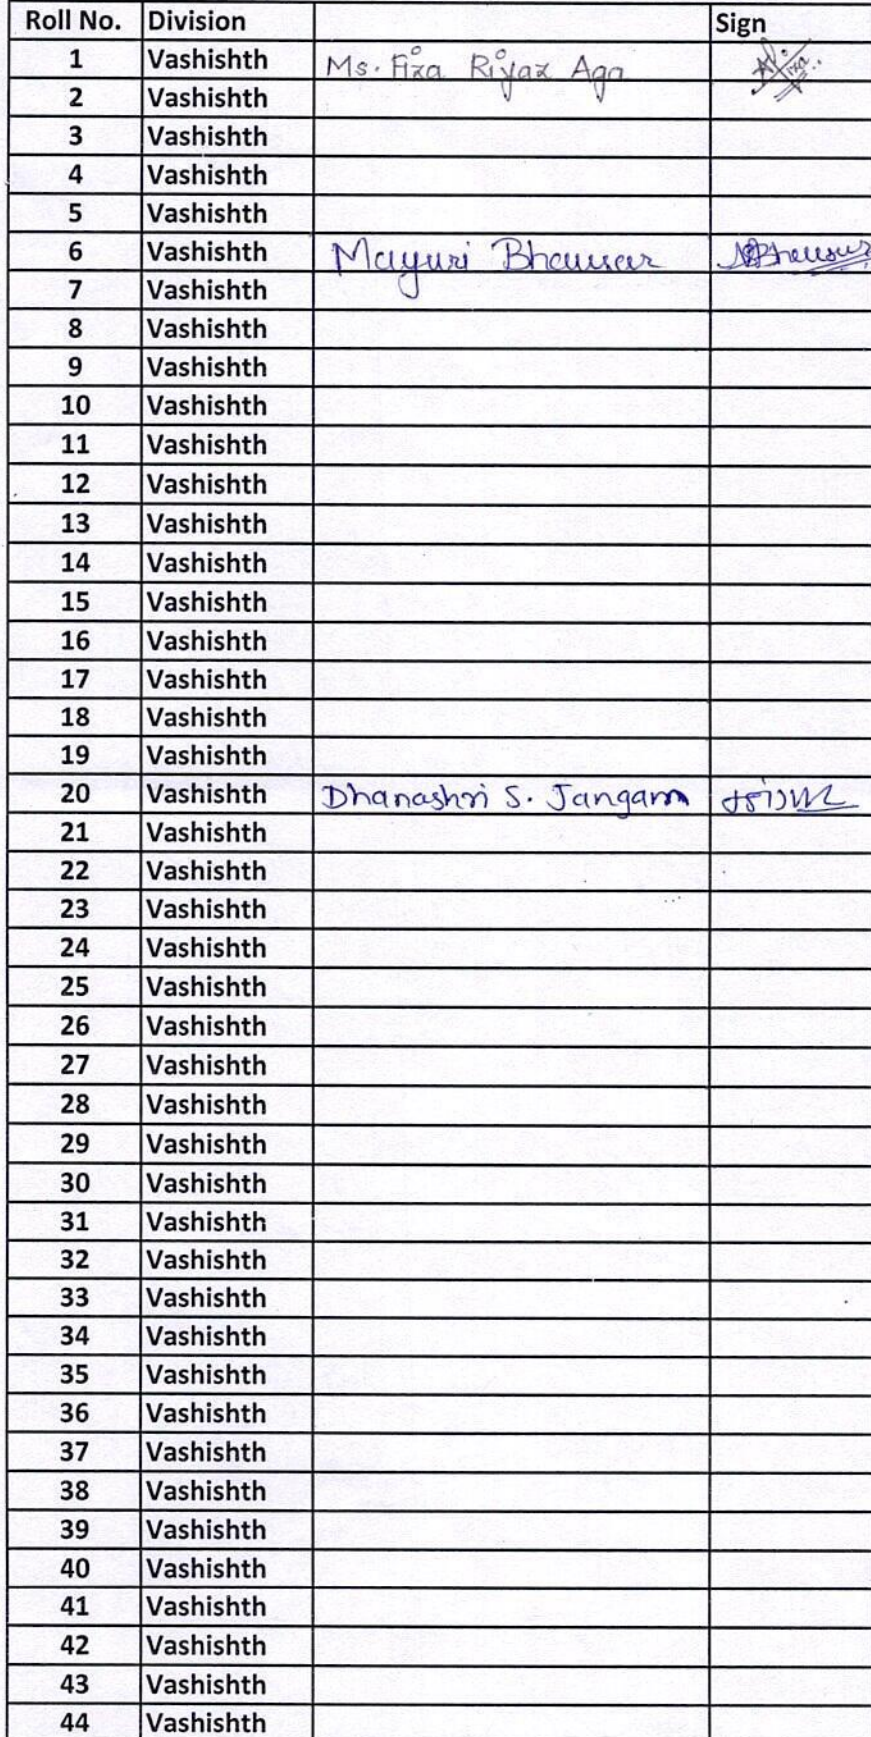 Roll No. Division Sign
1 Vashishth Ms. Fiza Riyaz Aga
2 Vashishth
3 Vashishth
4 Vashishth
5 Vashishth
6 Vashishth Mayuri Bhausar
7 Vashishth
8 Vashishth
9 Vashishth
10 Vashishth
11 Vashishth
12 Vashishth
13 Vashishth
14 Vashishth
15 Vashishth
16 Vashishth
17 Vashishth
18 Vashishth
19 Vashishth
20 Vashishth Dhanashri S. Jangam
21 Vashishth
22 Vashishth
23 Vashishth
24 Vashishth
25 Vashishth
26 Vashishth
27 Vashishth
28 Vashishth
29 Vashishth
30 Vashishth
31 Vashishth
32 Vashishth
33 Vashishth
34 Vashishth
35 Vashishth
36 Vashishth
37 Vashishth
38 Vashishth
39 Vashishth
40 Vashishth
41 Vashishth
42 Vashishth
43 Vashishth
44 Vashishth